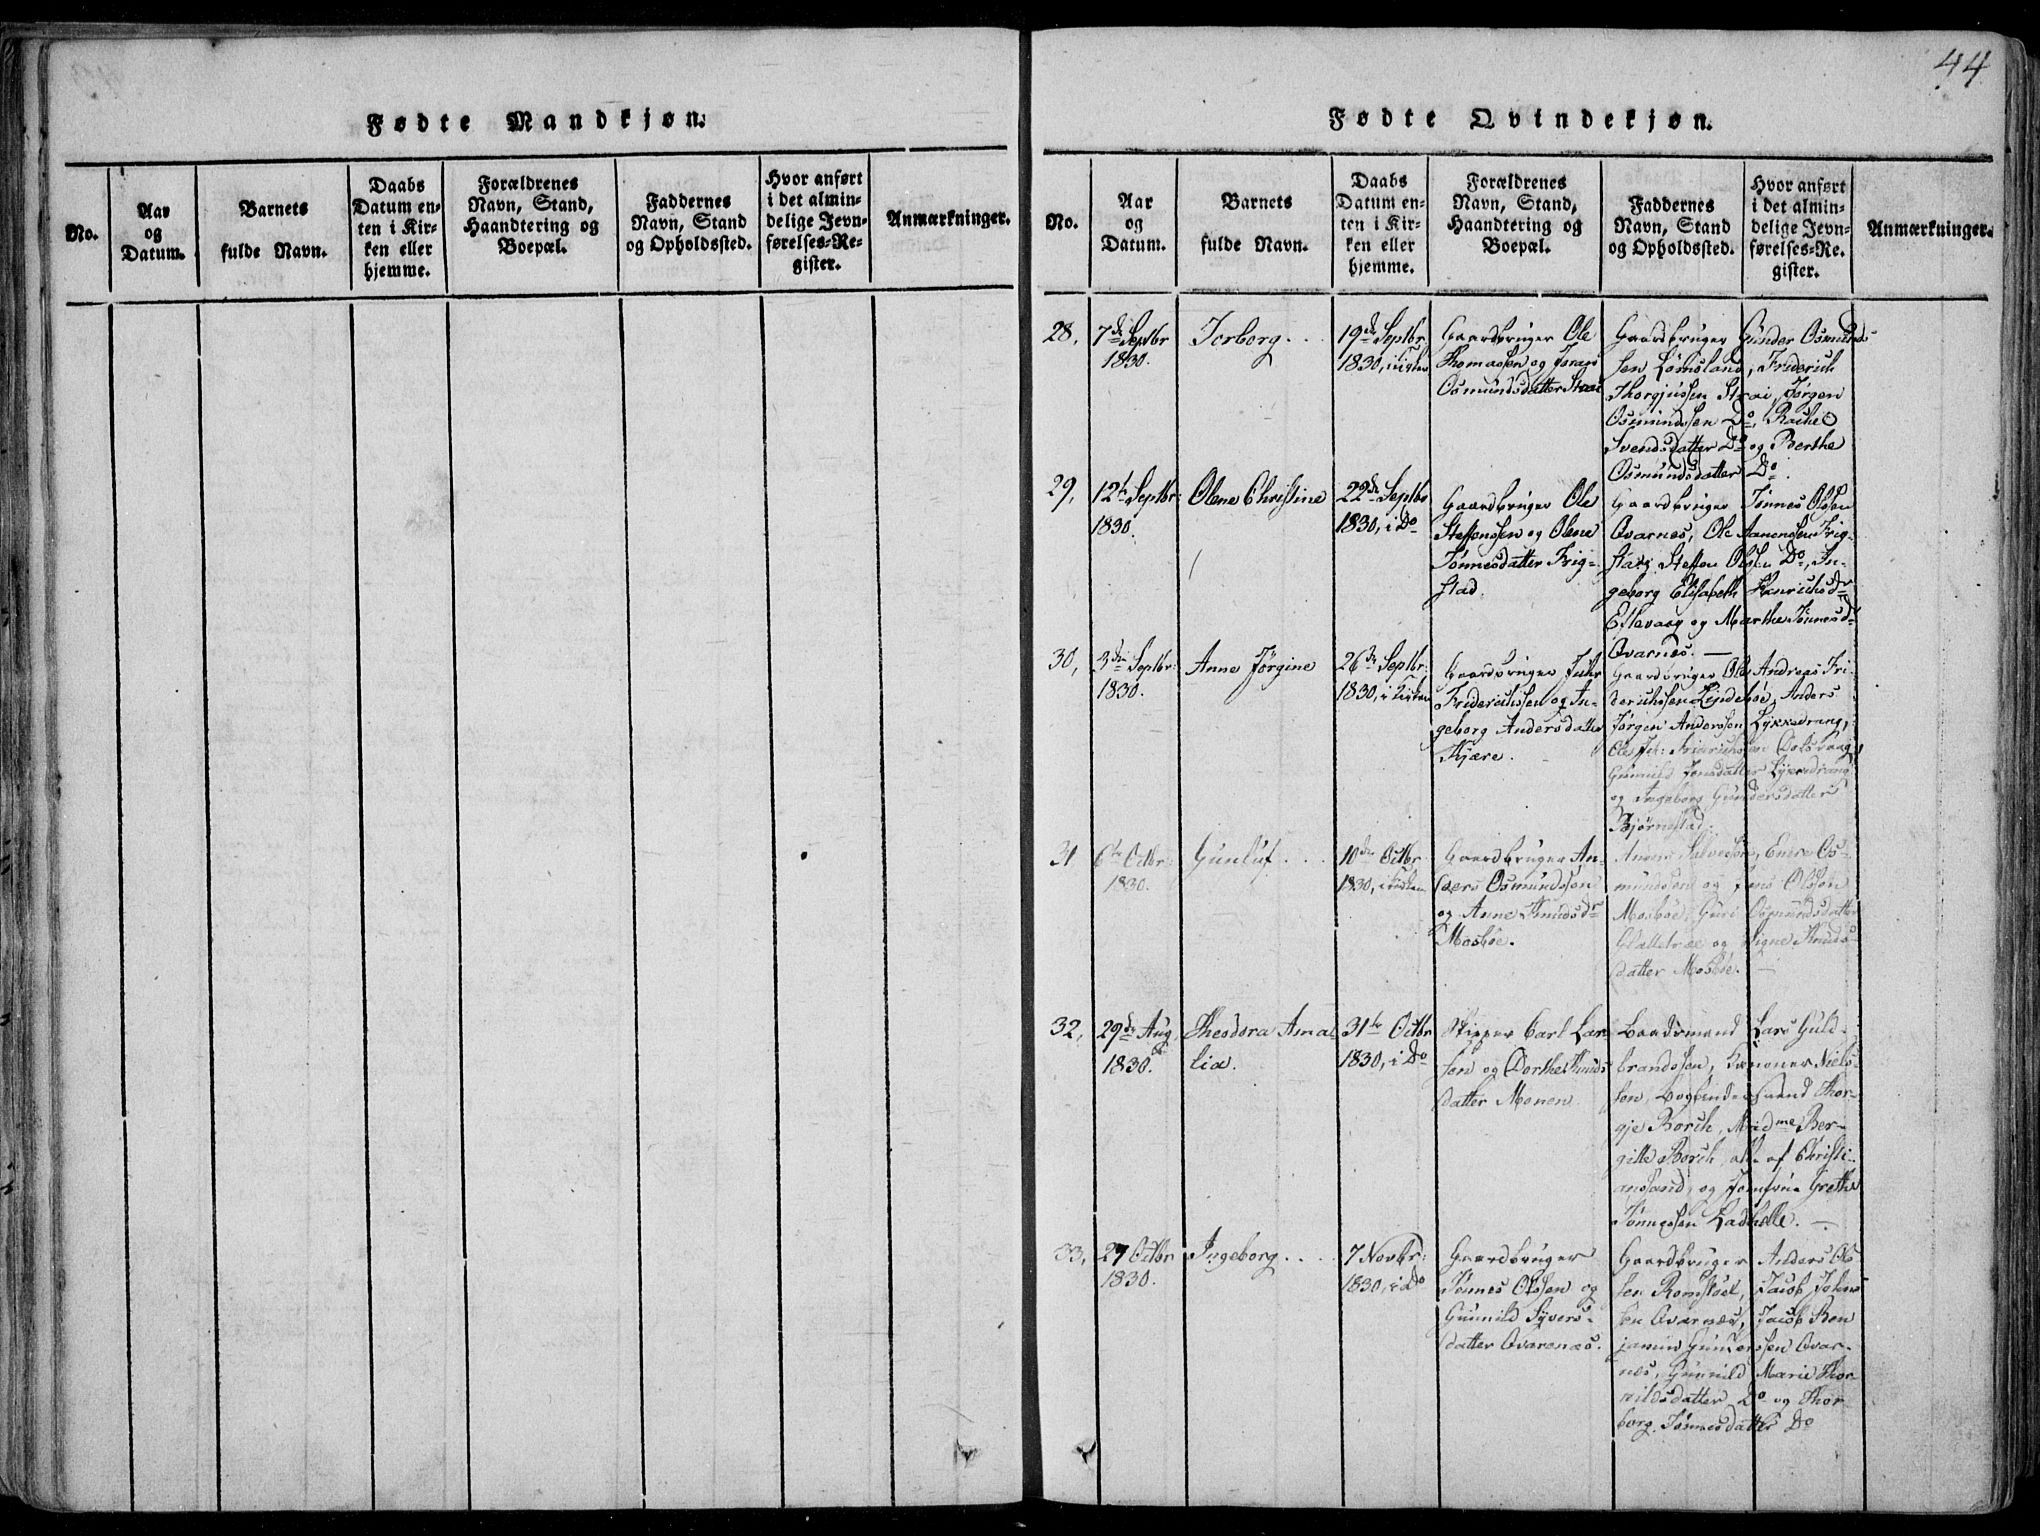 44
Fødte Mandkjøn.
No.
Aar
og
Datum.
Barnets
fulde Navn.
Daabs
Datum en-
ten i Kir-
ken eller
hjemme.
Forældrenes
Navn, Stand,
Haandtering og
Boepæl.
Faddernes
Navn, Stand
og Opholdssted.
Hvor anført
i det almin-
delige Jevn-
førelses-Re-
gister.
Anmærkninger.
Fødte Qvindekjøn.
No.
Aar
og
Datum.
Barnets
fulde Navn.
Daabs
Datum en-
ten i Kir-
ken eller
hjemme.
Forældrenes
Navn, Stand,
Haandtering og
Boepæl.
Faddernes
Navn, Stand
og Opholdssted.
Hvor anført
i det almin-
delige Jevn-
førelses-Re-
gister.
Anmærkninger.
28,
7de Septbr
1830.
Torborg...
19de Septbr
1830, i Kirken
Gaardbruger Ole
Thomassen og
Osmundsdatter Strai
Gaardbruger Gunder Osmund-
sen Lomsland, Friderich
Thorgjussen Strai, Jørgen
Osmundssen Do, Rachel
Svendsdatter Do og Berthe
Osmundsdatter Do.
29,
12te Septbr:
1830.
Olene Christine
22de Septbr
1830, i Do
Gaardbruger Ole
Steffenssen og Olene
Tønnesdatter Frig-
stad.
Gaardbruger Tønnes Olssen
Qvarnes, Ole Aanensen Frig-
stad, Steffen Olsen Do, In-
geborg Elisabeth Hanrichsdr
og Marthe Tønnesd-
Qvarnes. —
30,
3die Septbr:
1830.
Anne Jørgine
26de Septbr:
1830, i Kirken
Gaardbruger
Friderichssen og In-
geborg Andersdatter
Kjære.
Gaardbruger Ole Andreas Fri-
derichssen Lindeboe, Anders
Jørgen Anderssen Lykkedrang,
Gunnild Jensdatter Lykkedrang
og Ingeborg Gundersdatter
Bjørnestad.
31
6te Octbr:
1830.
Gunluf....
10de Octbr
1830, i Kirken
Gaardbruger An-
ders Osmundssen
og Anne Knudsdr
Mosbøe.
Salvessen, Os-
mundssen og Jens Olssen
Mosbøe, Guri Osmundsdatter
og Signe Knuds-
datter Mosbøe. —
32,
29de Aug
1830.
Theodora Ama-
lia.
31te Octbr
1830, i Do
Skipper Carl Lar-
sen og Dorthe Knuds
datter Monen.
Baadsmand Lars Guld-
brandssen, Niels-
sen, Thor-
gje Borch, Madme Ber-
gitte Borch, alle af Christi-
ansand, og Jomfrue Grethe
Tønnessen Ladhølle. —
33,
27 Octbr
1830.
Ingeborg....
7 Novbr:
1830, i Do
Gaardbruger
Tønnes Olssen og
Gunnild Syvers-
datter Qvarenæs.
Gaardbruger Anders Ols
sen Romstøel, Jacob
sen Qvarnæs, Jacob Ben
jamin Gunderssen Qvar-
nes, Gunnild Marie Thor
vildsdatter Do og Thor-
borg Tønnesdatter Do